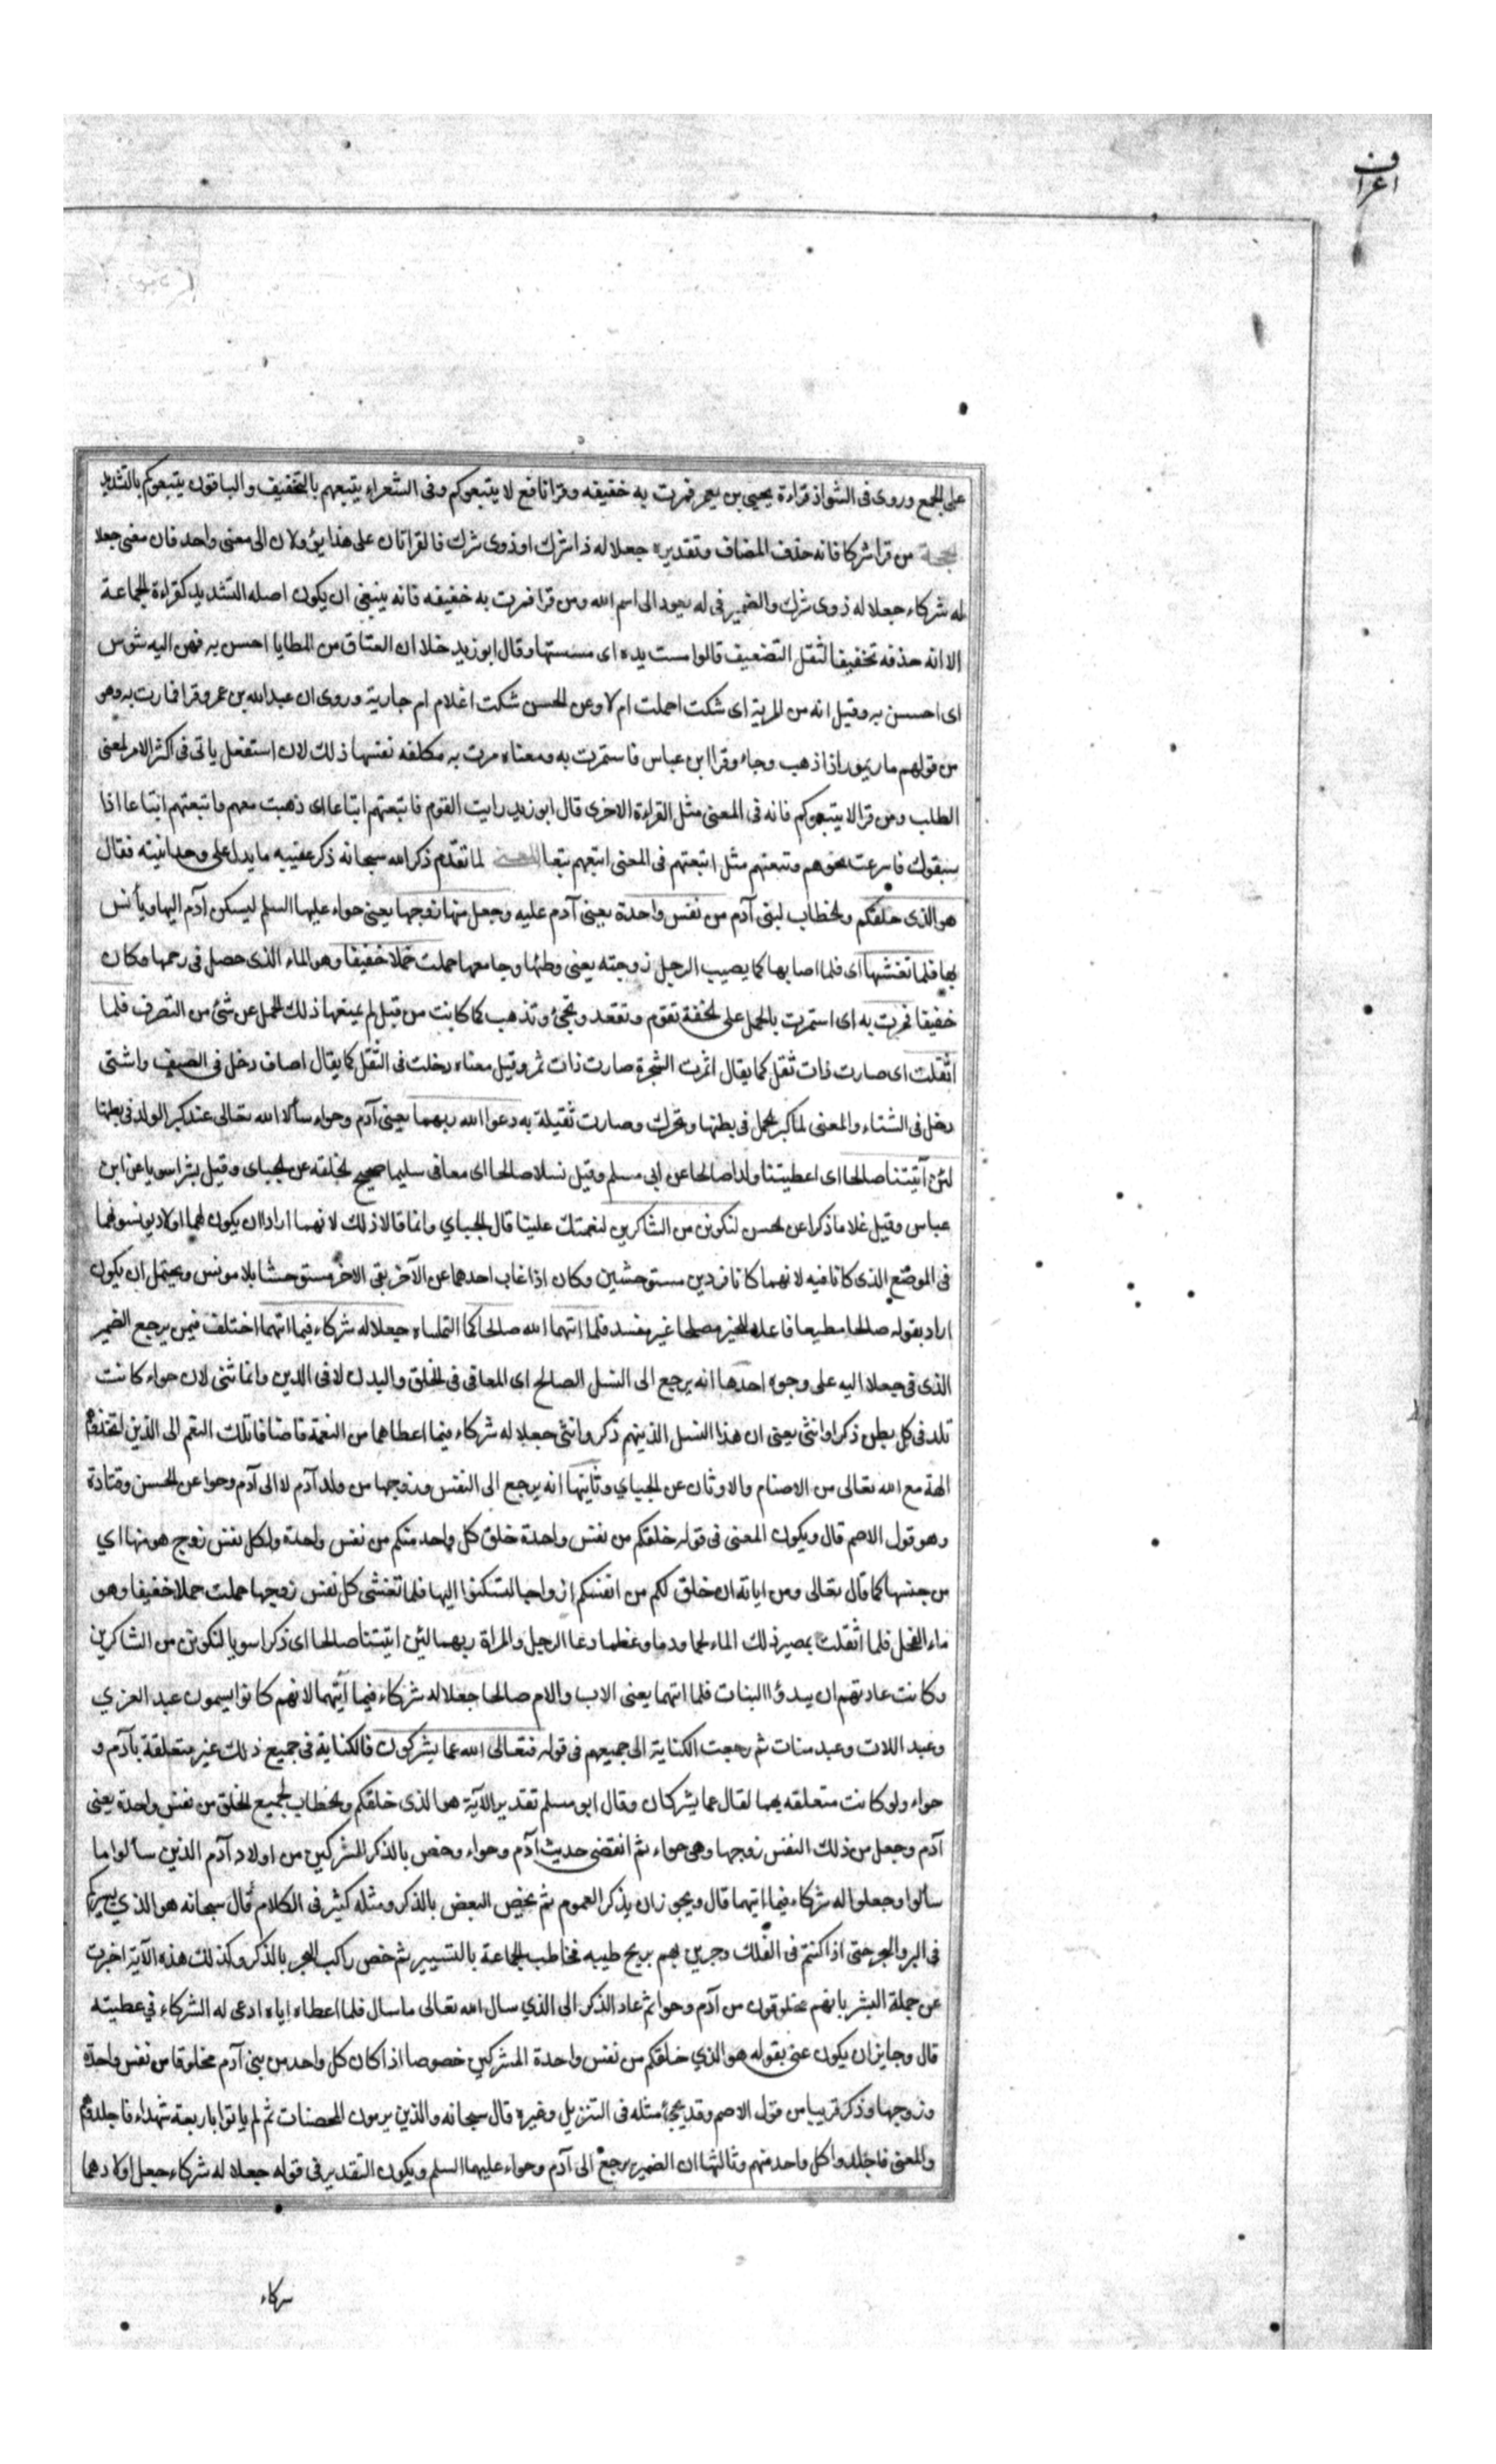 اعراف
على الجمع وروى فى الشواذ قراءة يحيى بن يعمر فمرت به خفيفه وقرا نافع لا يتبعوكم وفى الشعراء يتبعهم بالتخفيف والباقون يتبعوكم بالتشديد
الحجة من قرا شركا فانه حذف المضاف وتقديره جعلا له ذا شرك او ذوى شرك فالقراتان على هذا يؤولان الى معنى واحد فان معنى جعلا
له شركاء جعلا له ذوى شرك والضمير فى له يعود الى اسم الله ومن قرا فمرت به خفيفه فانه ينبغى ان يكون اصله التشديد كقراءة الجماعة
الا انه حذفه تخفيفا لثقل التضعيف قالوا مست يده اى مسستها وقال ابو زيد خلا ان العتاق من المطايا احسن به فهن اليه شوس
اى احسسن به وقيل انه من المرية اى شكت احملت ام لا وعن الحسن شكت اغلام ام جارية وروى ان عبدالله بن عمرو قرا فمارت به وهو
من قولهم مار يمور اذا ذهب وجاء وقرا ابن عباس فاستمرت به ومعناه مرت به مكلفه نفسها ذلك لان استفعل ياتى فى اكثر الامر لمعنى
الطلب ومن قرا لا يتبعوكم فانه فى المعنى مثل القراءة الاخرى قال ابو زيد رايت القوم فاتبعتهم اتباعا اى ذهبت معهم واتبعتهم اتباعا اذا
سبقوك فاسرعت نحوهم وتبعتهم مثل اتبعتهم فى المعنى اتبعهم تبعا المعنى لما تقدم ذكر الله سبحانه ذكر عقيبه ما يدل على وحدانيته فقال
هو الذى خلقكم والخطاب لبنى آدم من نفس واحدة يعنى آدم عليه وجعل منها زوجها يعنى حواء عليها السلم ليسكن آدم اليها ويأنس
بها فلما تغشيها اى فلما اصابها كما يصيب الرجل زوجته يعنى وطئها وجامعها حملت حملا خفيفا وهو الماء الذى حصل فى رحمها وكان
خفيفا فمرت به اى استمرت بالحمل على الخفة تقوم وتقعد وتجئ وتذهب كما كانت من قبل لم يمنعها ذلك الحمل عن شئ من التصرف فلما
اثقلت اى صارت ذات ثقل كما يقال اثمرت الشجرة صارت ذات ثمر وقيل معناه دخلت فى الثقل كما يقال اصاف دخل فى الصيف واشتى
دخل فى الشتاء والمعنى لما كبر الحمل فى بطنها وتحرك وصارت ثقيلة به دعوا الله ربهما يعنى آدم وحواء سألا الله تعالى عند كبر الولد فى بطنها
لئن آتيتنا صالحا اى اعطيتنا ولدا صالحا عن ابى مسلم وقيل نسلا صالحا اى معافى سليما صحيح الخلقه عن الجباى وقيل بشرا سويا عن ابن
عباس وقيل غلاما ذكرا عن الحسن لنكونن من الشاكرين لنعمتك علينا قال الجباي وانما قالا ذلك لانهما ارادا ان يكون لهما اولاد يونسونهما
فى الموضع الذى كانا فيه لانهما كانا فردين مستوحشين وكان اذا غاب احدهما عن الآخر بقى الاخر مستوحشا بلا مونس ويحتمل ان يكون
اراد بقوله صالحا مطيعا فاعلا للخير مصلحا غير مفسد فلما اتيهما الله صالحا كما التمساه جعلا له شركاء فيما اتيهما اختلف فيمن يرجع الضمير
الذى فى جعلا اليه على وجوه احدها انه يرجع الى النسل الصالح اى المعافى فى الخلق والبدن لا فى الدين وانما ثنى لان حواء كانت
تلد فى كل بطن ذكرا وانثى يعنى ان هذا النسل الذينهم ذكر وانثى جعلا له شركاء فيما اعطاهما من النعمة فاضافا تلك النعم الى الذين اتخذوهم
الهة مع الله تعالى من الاصنام والاوثان عن الجباي وثانيها انه يرجع الى النفس وزوجها من ولد آدم لا الى آدم وحوا عن الحسن وقتادة
وهو قول الاصم قال ويكون المعنى فى قوله خلقكم من نفس واحدة خلق كل واحد منكم من نفس واحدة ولكل نفس زوج هو منها اي
من جنسها كما قال تعالى ومن اياته ان خلق لكم من انفسكم ازواجا لتسكنوا اليها فلما تغشى كل نفس زوجها حملت حملا خفيفا وهو
ماء الفحل فلما اثقلت بمصير ذلك الماء لحما ودما وعظما دعا الرجل والمراة ربهما لئن اتيتنا صالحا اى ذكرا سويا لنكونن من الشاكرين
وكانت عادتهم ان يبدؤا البنات فلما اتيهما يعنى الاب والام صالحا جعلا له شركاء فيما آتيهما لانهم كانوا يسمون عبد العزي
وعبد اللات وعبد منات ثم رجعت الكناية الى جميعهم فى قوله فتعالى الله عما يشركون فالكناية فى جميع ذلك غير متعلقة بآدم و
حواء ولو كانت متعلقه بهما لقال عما يشركان وقال ابو مسلم تقدير الآية هو الذى خلقكم والخطاب لجميع الخلق من نفس واحدة يعنى
آدم وجعل من ذلك النفس زوجها وهى حواء ثم انقضى حديث آدم وحواء وخص بالذكر المشركين من اولاد آدم الذين سألوا ما
سألوا وجعلوا له شركاء فيما اتيهما قال ويجوز ان يذكر العموم ثم يخص البعض بالذكر ومثله كثير فى الكلام قال سبحانه هو الذي يسيركم
فى البر والبحر حتى اذا كنتم فى الفلك وجرين بهم بريح طيبه فخاطب الجماعة بالتسيير ثم خص راكب البحر بالذكر وكذلك هذه الآية اخبرت
عن جملة البشر بانهم مخلوقون من آدم وحوا ثم عاد الذكر الى الذي سال الله تعالى ما سال فلما اعطاه اياه ادعى له الشركاء في عطيته
قال وجايز ان يكون عنى بقوله هو الذي خلقكم من نفس واحدة المشركين خصوصا اذا كان كل واحد من بنى آدم مخلوقا من نفس واحدة
وزوجها وذكر قريبا من قول الاصم وقد يجئ مثله فى التنزيل وغيره قال سبحانه والذين يرمون المحصنات ثم لم ياتوا باربعة شهداء فاجلدوهم
والمعنى فاجلدوا كل واحد منهم وثالثها ان الضمير يرجع الى آدم وحواء عليهما السلم ويكون التقدير فى قوله جعلا له شركاء جعل اولادهما
سركاء